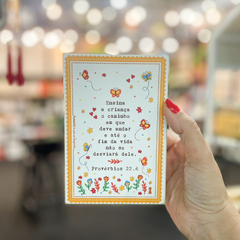 Ensina
a criança
o caminho
em que
deve andar
e até o
fim da vida
não se
desviará dele.
Provérbios 22.6